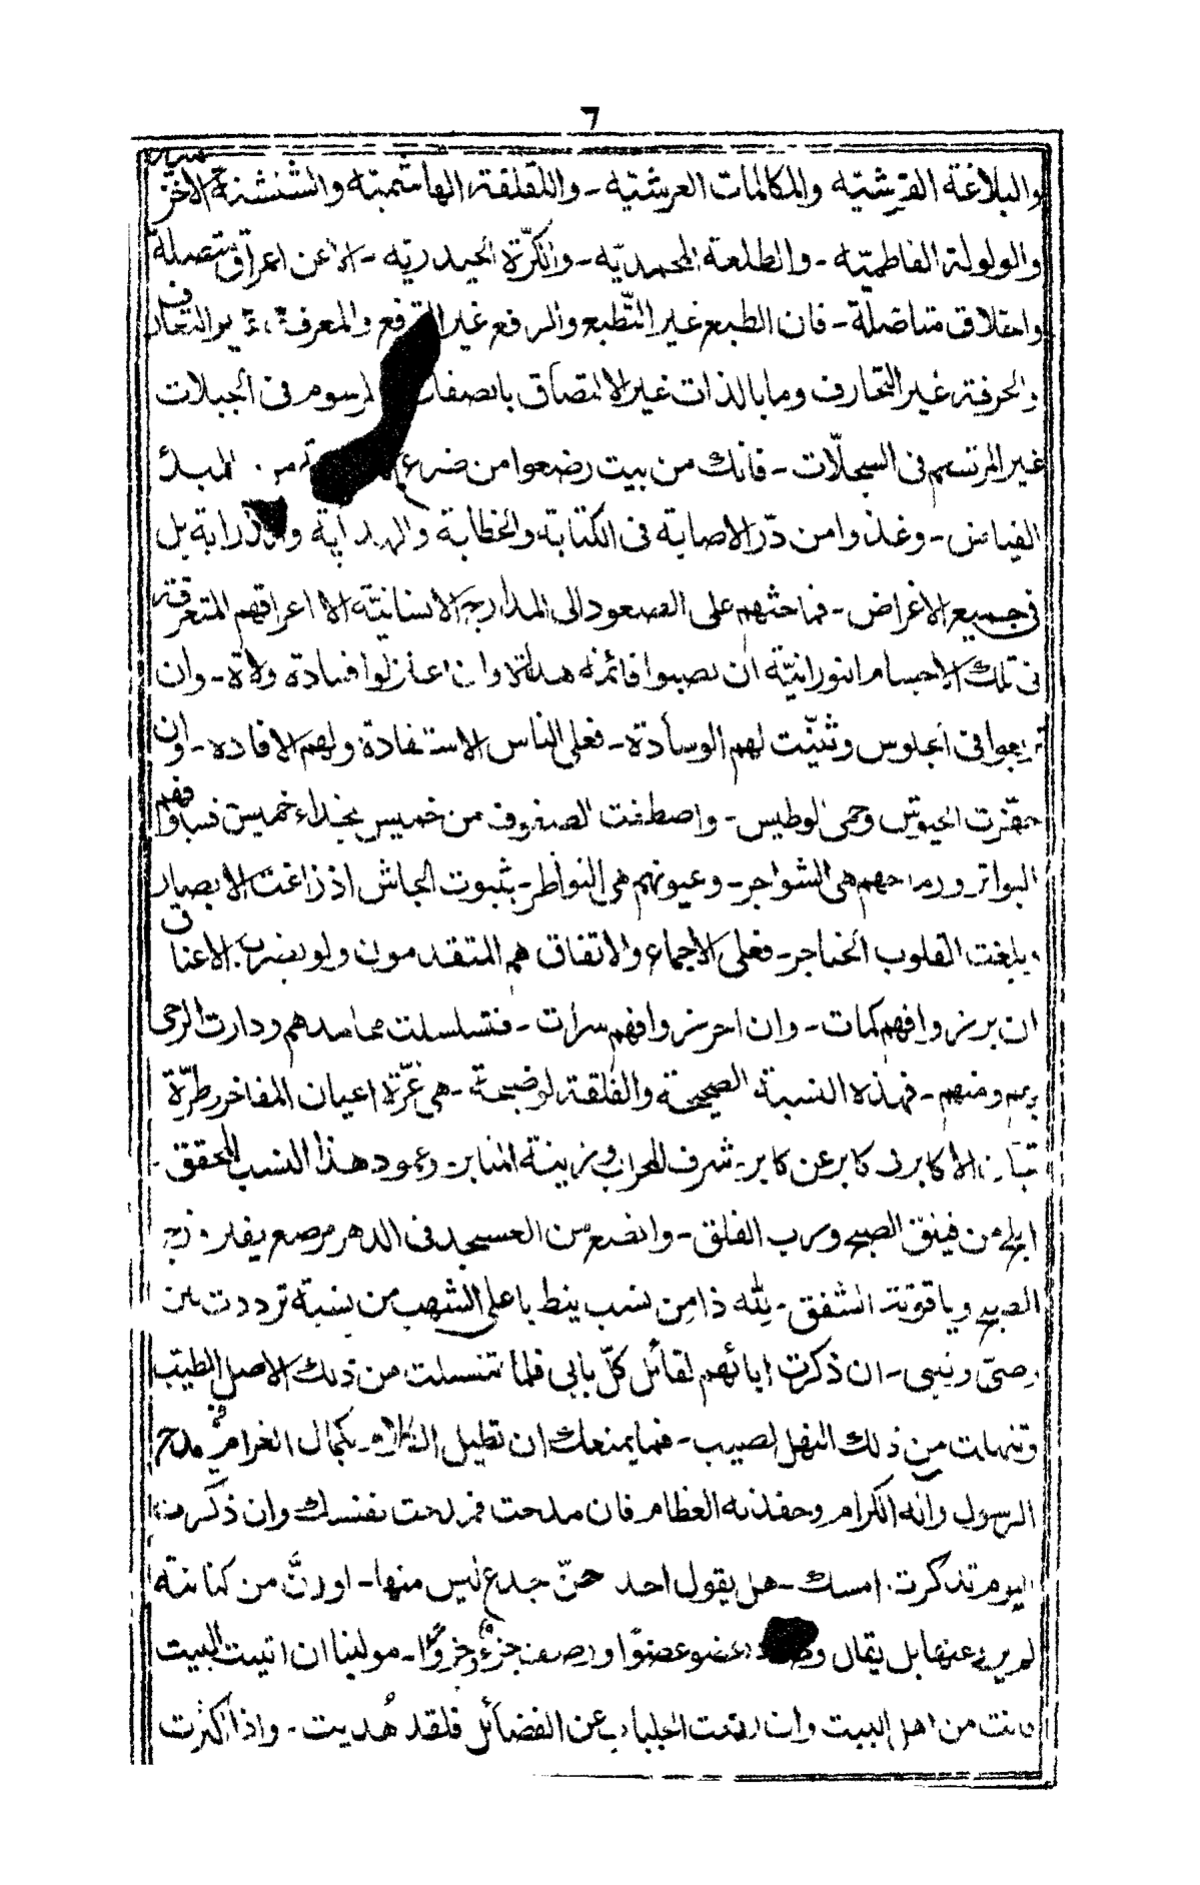 ٦
والبلاغة القرشيّه والمكالمات العرشيّه - واللقلقة الهاشميّه والشنشنة الاخزميّة
والولولة الفاطميّه - والطلعة المحمديّه - والكرّة الحيدريّه - الا عن اعراق متصلة
واخلاق متاضلة - فان الطبع غير التّطبع والرفع غير الترفع والمعرفة غير التعارف
والحرفة غير التحارف وما بالذات غير الاتصاف بالصفات المرسوم فى الجبلات
غير المرتسم فى السجلّات - فانك من بيت رضعوا من ضرع من المبدأ
الفياض - وغذوا من درّ الاصابة فى الكتابة والخطابة والهداية والدراية بل
فى جميع الاغراض - فما حثهم على الصعود الى المدارج الانسانيّة الا اعراقهم المتعرقة
فى تلك الاجسام النورانيّة ان نصبوا فائمة هداة وان اعتزلوا فسادة ولاة - وان
تربعوا فى الجلوس وثنيّت لهم الوسادة - فعلى الناس الاستفادة ولهم الافادة - وان
الجيوش وحمى الوطيس - واصطفت الصفوف من خميس بحذاء خميس فسيافهم
البواتر ورماحهم هى الشواجر - وعيونهم هى النواظر - بثبوت الجاش اذ زاغت الابصار
وبلغت القلوب الحناجر - فعلى الاجماع والاتفاق هم المتقدمون ولو بضرب الاعناق
ان برز وافهم كمات - وان احرز وافهم سرات - فتسلسلت محامدهم ودارت الرحى
بهم ومنهم - فهذه النسبة الصحيحة والفلقة الوضيحة - هى غرّة اعيان المفاخر وطرّة
الاكابر فى كابر عن كابر - شرف المحراب وزينة المنابر - وعمود هذا النسب المحقق -
ابلج من فينق الصبح ومن رب الفلق - وانصع من العسجد فى الدهر مرصع
الصبح وياقوتة الشفق - لله ذا من نسب ينط باعلى الشهب من نسبة ترددت بين
وصىّ ونبى - ان ذكرت ابائهم لقائل كلّ بابى فلما تنسلت من ذلك الاصل الطيّب
وتنهلت من ذلك النهل الصبيب - فما يمنعك ان تطيل الكلام بكمال الغرام فى مدح
الرسول وآله الكرام وحفدته العظام فان مدحت فمدحت نفسك وان ذكرت
اليوم تذكرت امسك - هل يقول احد حنّ جدع ليس منها - او رنّ من كنانته
لم يرو عنها بل يقال عضو عضوًا ورصف جزءٌ وجزوًا - مولينا ان اتيت البيت
فانت من اهل البيت وان رفعت الجلباب عن الفضائل فلقد هُديت - واذا اكثرت